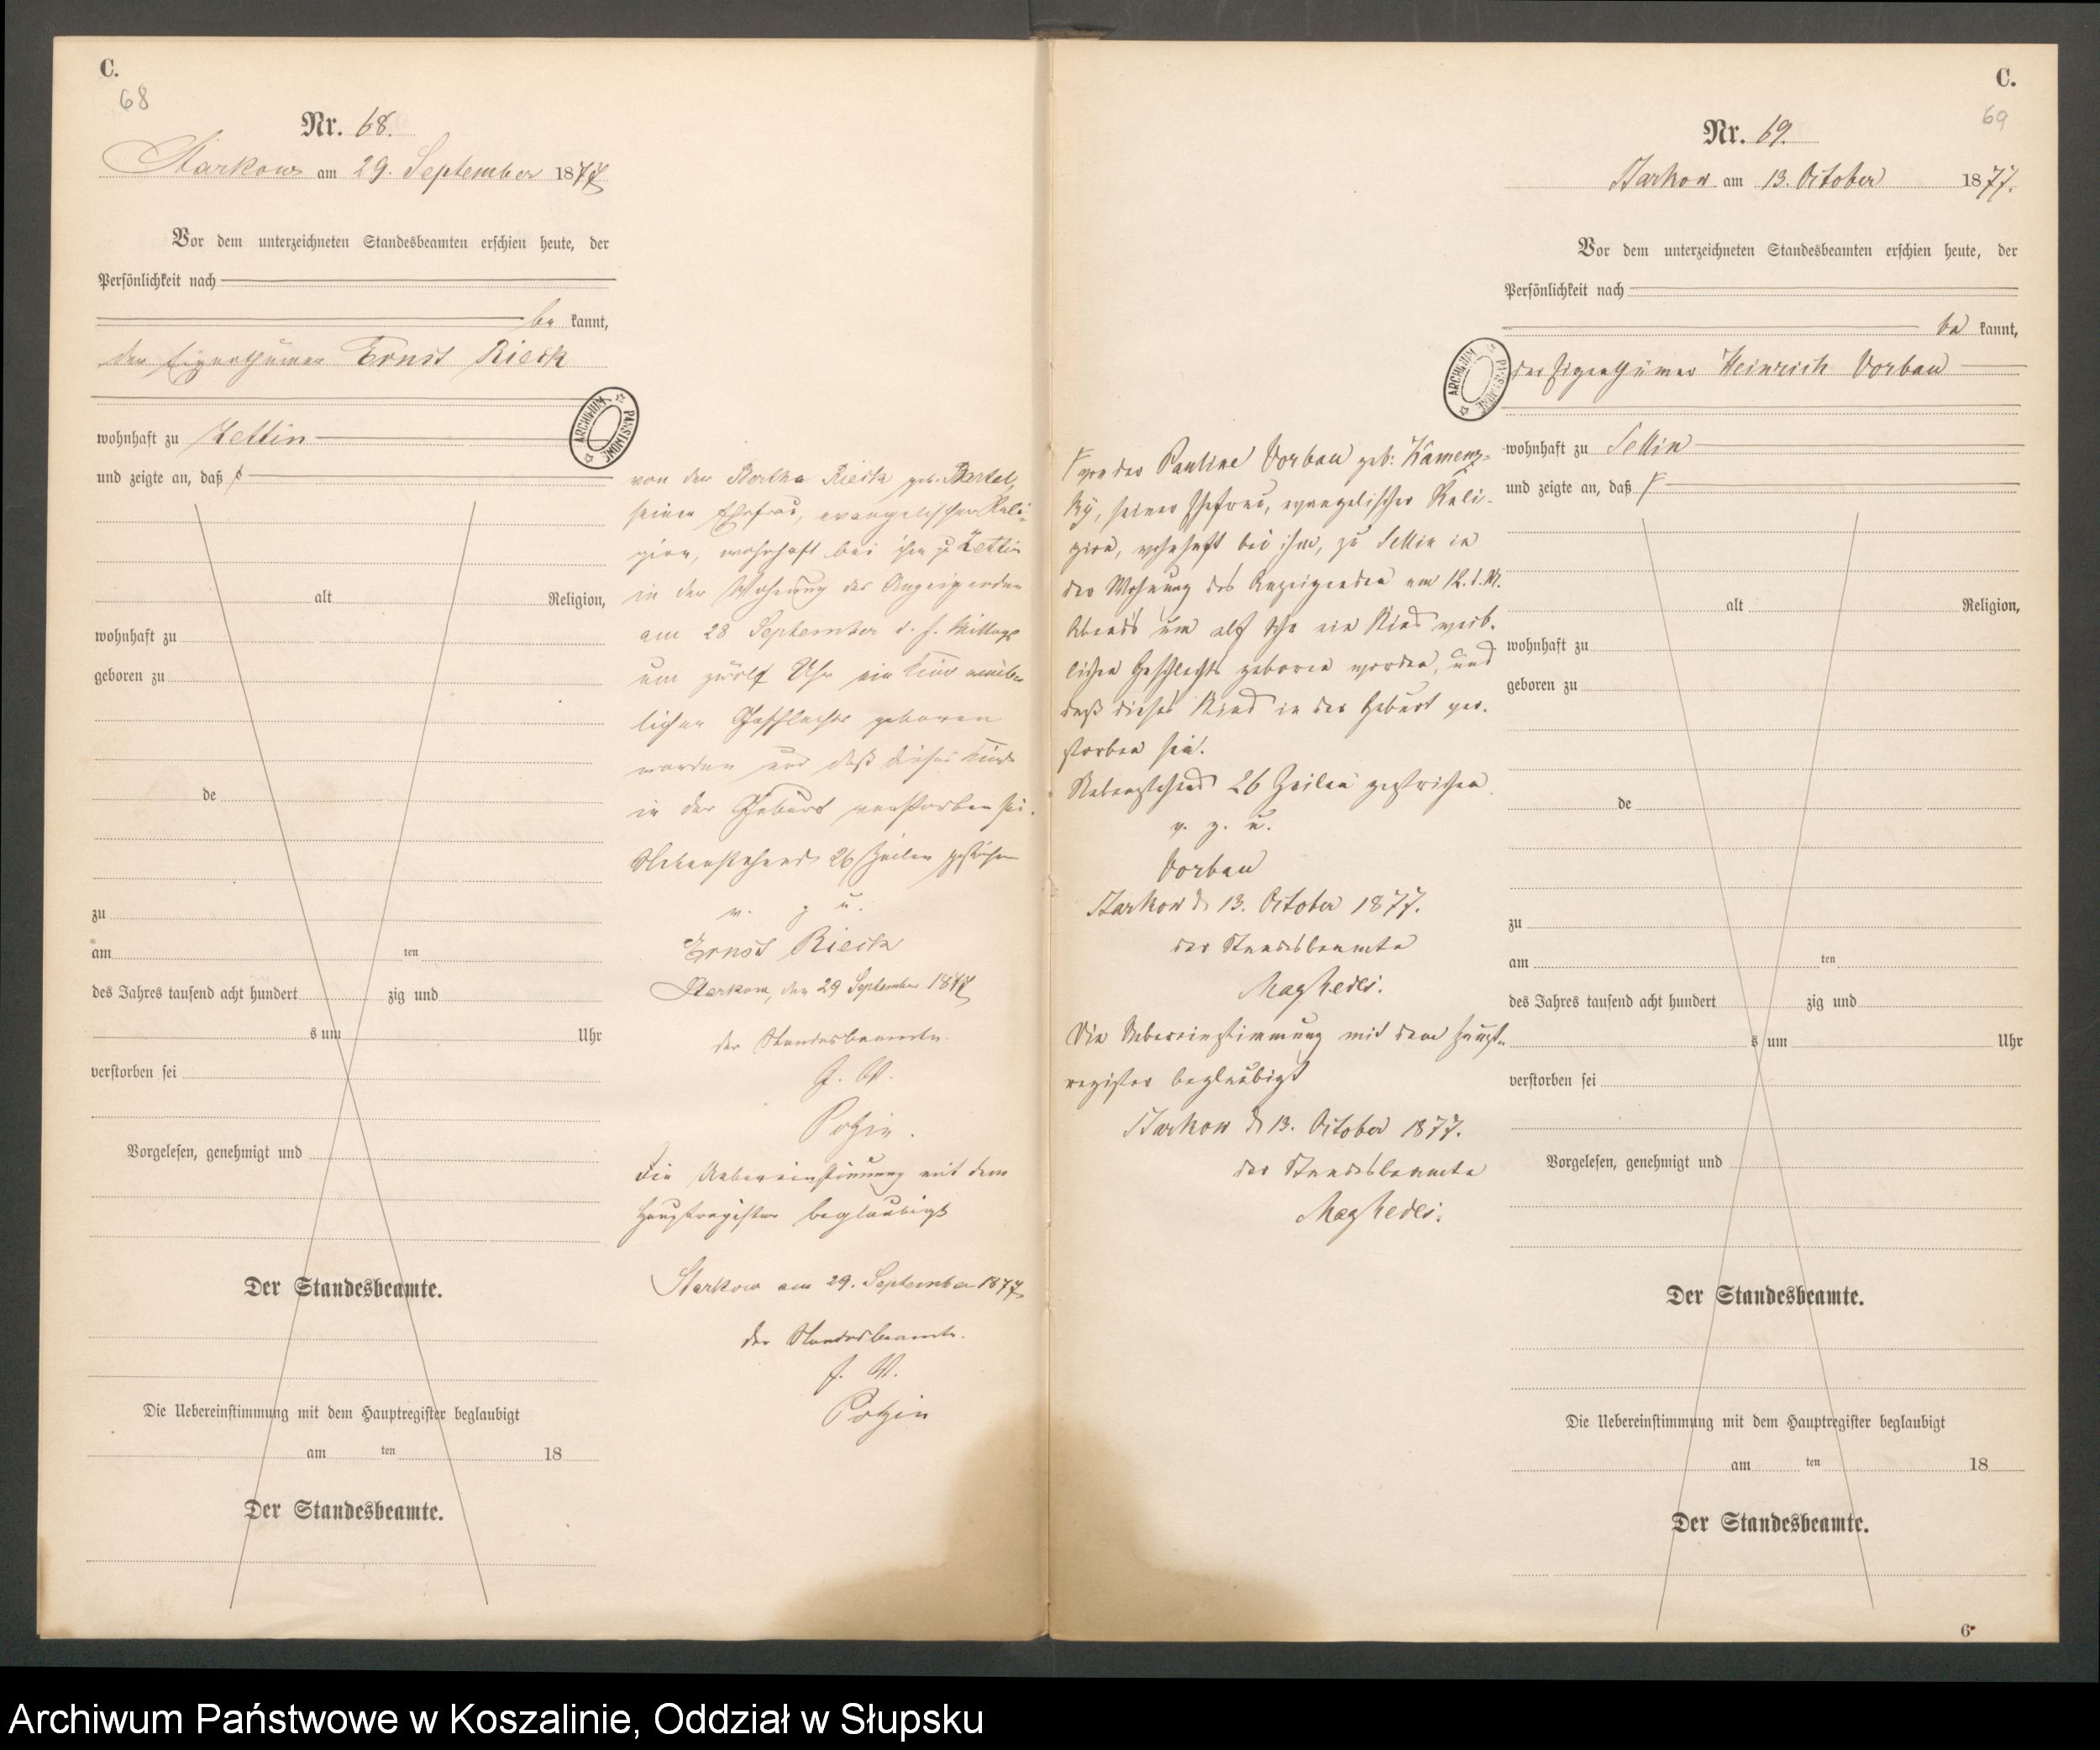 C.
68
Nr. 68.
Starkow am 29. September 1877
Vor dem unterzeichneten Standesbeamten erschien heute, der
Persönlichkeit nach
be kannt,
der Eigenthümer Ernst Rieck
ARCHIWUM PAŃSTWOWE
wohnhaft zu Zettin
und zeigte an, daß
alt Religion,
wohnhaft zu
geboren zu
de
zu
am ten
des Jahres tausend acht hundert zig und
s um Uhr
verstorben sei
Vorgelesen, genehmigt und
Der Standesbeamte.
Die Uebereinstimmung mit dem Hauptregister beglaubigt
am ten 18
Der Standesbeamte.
von der Bertha Rieck geb. Bartel,
seiner Ehefrau, evangelischer Reli-
gion, wohnhaft bei ihm zu Zettin
in der Wohnung des Anzeigenden
am 28 September d. J. Mittags
um zwölf Uhr ein Kind
lichen Geschlechts geboren
worden und daß dieses Kind
in der Geburt verstorben sei.
Nebenstehend 26 Zeilen gestrichen
v. g. u.
Ernst Rieck
Starkow, den 29 September 1877
der Standesbeamte.
J. V.
Die Uebereinstimmung mit dem
Hauptregister beglaubigt
Starkow am 29. September 1877
der Standesbeamte.
J. V.
C.
69
Nr. 69.
Starkow am 13. October 1877.
Vor dem unterzeichneten Standesbeamten erschien heute, der
Persönlichkeit nach
be kannt,
der Eigenthümer Heinrich Vorbau
ARCHIWUM PAŃSTWOWE
wohnhaft zu Sellin
und zeigte an, daß
alt Religion,
wohnhaft zu
geboren zu
de
zu
am ten
des Jahres tausend acht hundert zig und
s um Uhr
verstorben sei
Vorgelesen, genehmigt und
Der Standesbeamte.
Die Uebereinstimmung mit dem Hauptregister beglaubigt
am ten 18
Der Standesbeamte.
6*
von der Pauline Vorbau geb: Kamenz-
ky, seiner Ehefrau, evangelischer Reli-
gion, wohnhaft bei ihm, zu Sellin in
der Wohnung des Anzeigenden am 12. d. M.
Abends um elf Uhr ein Kind weib-
lichen Geschlechts geboren worden, und
daß dieses Kind in der Geburt ver-
storben sei.
Nebenstehend 26 Zeilen gestrichen.
v. g. u.
Vorbau
Starkow d. 13. October 1877.
der Standesbeamte
Die Uebereinstimmung mit dem Haupt-
register beglaubigt
Starkow d. 13. October 1877.
der Standesbeamte
Archiwum Państwowe w Koszalinie, Oddział w Słupsku